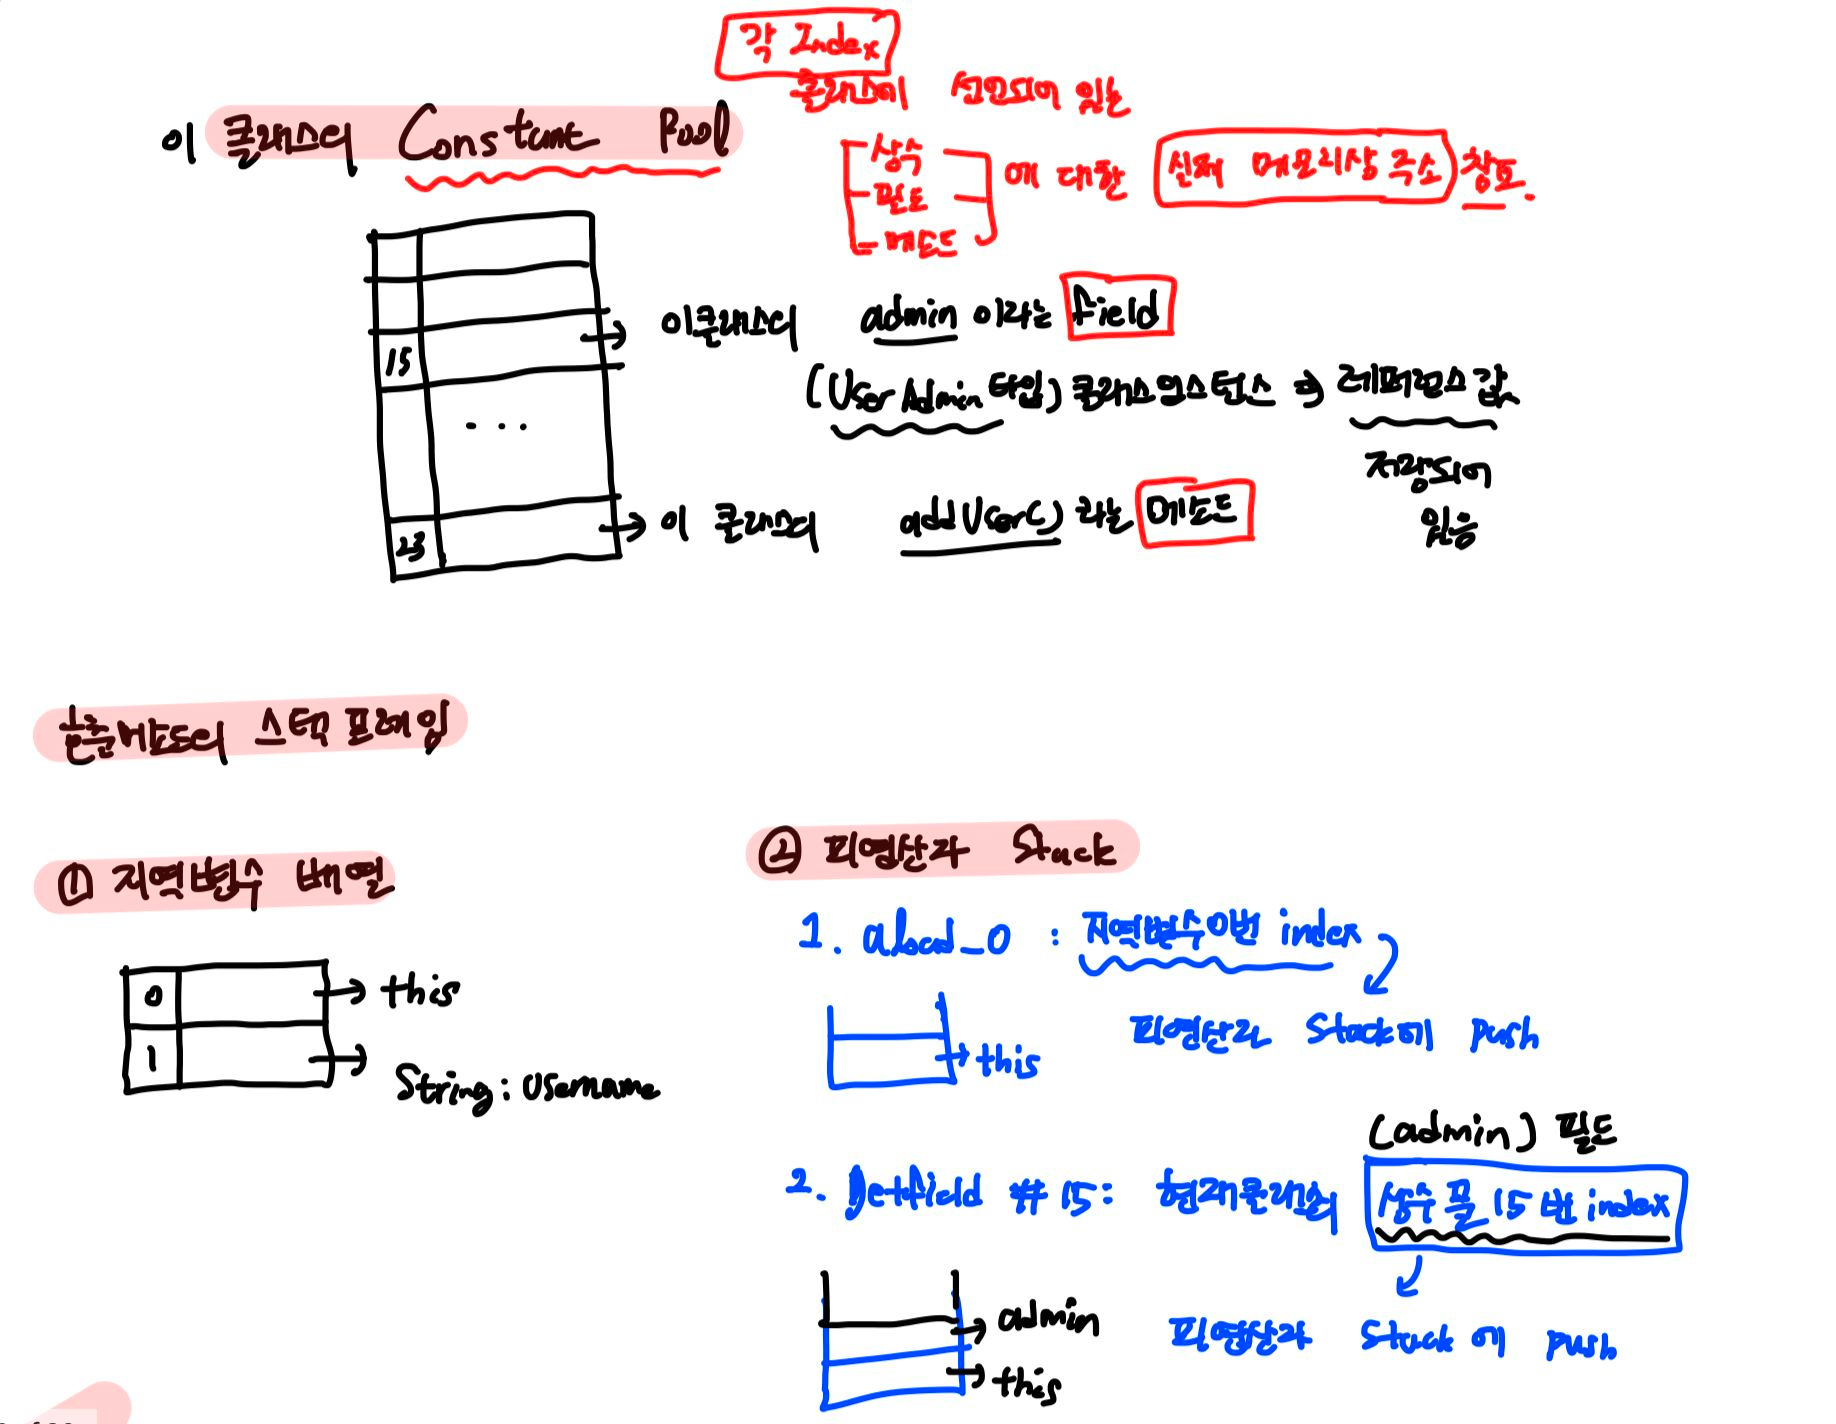 각 Index
클래스에 선언되어 있는
이 클래스의 Constant Pool
상수
필드
메소드
에 대한 실제 메모리상 주소 참조.
15
이클래스의 admin 이라는 field
(UserAdmin 타입) 클래스인스턴스 ⇒ 레퍼런스 값
저장되어
있음
...
23
이 클래스의 addUser() 라는 메소드
호출메소드의 스택 프레임
① 지역변수 배열
0
this
1
String: username
② 피연산자 Stack
1. aload_0 : 지역변수 0번 index
피연산자 Stack에 push
this
(admin) 필드
2. getfield #15: 현재클래스의 상수 풀 15번 index
피연산자 Stack에 push
admin
this